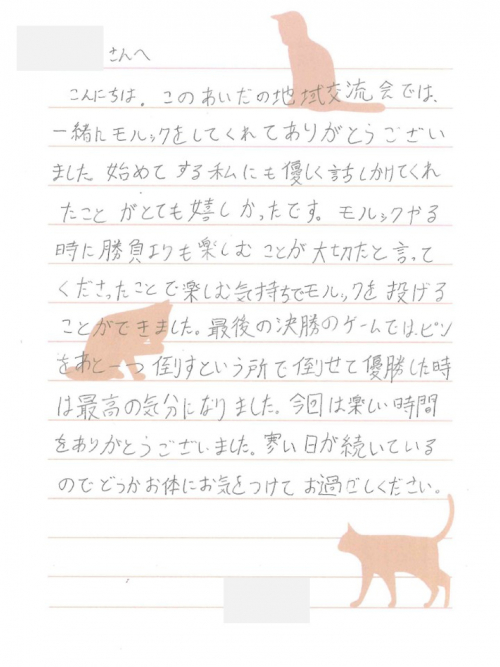 さんへ
こんにちは。このあいだの地域交流会では、
一緒にモルックをしてくれてありがとうござい
ました。始めてする私にも優しく話しかけてくれ
たことがとても嬉しかったです。モルックやる
時に勝負よりも楽しむことが大切だと言って
くださったことで楽しむ気持ちでモルックを投げる
ことができました。最後の決勝のゲームでは、ピン
をあと一つ倒すという所で倒せて優勝した時
は最高の気分になりました。今回は楽しい時間
をありがとうございました。寒い日が続いている
のでどうかお体にお気をつけてお過ごしください。